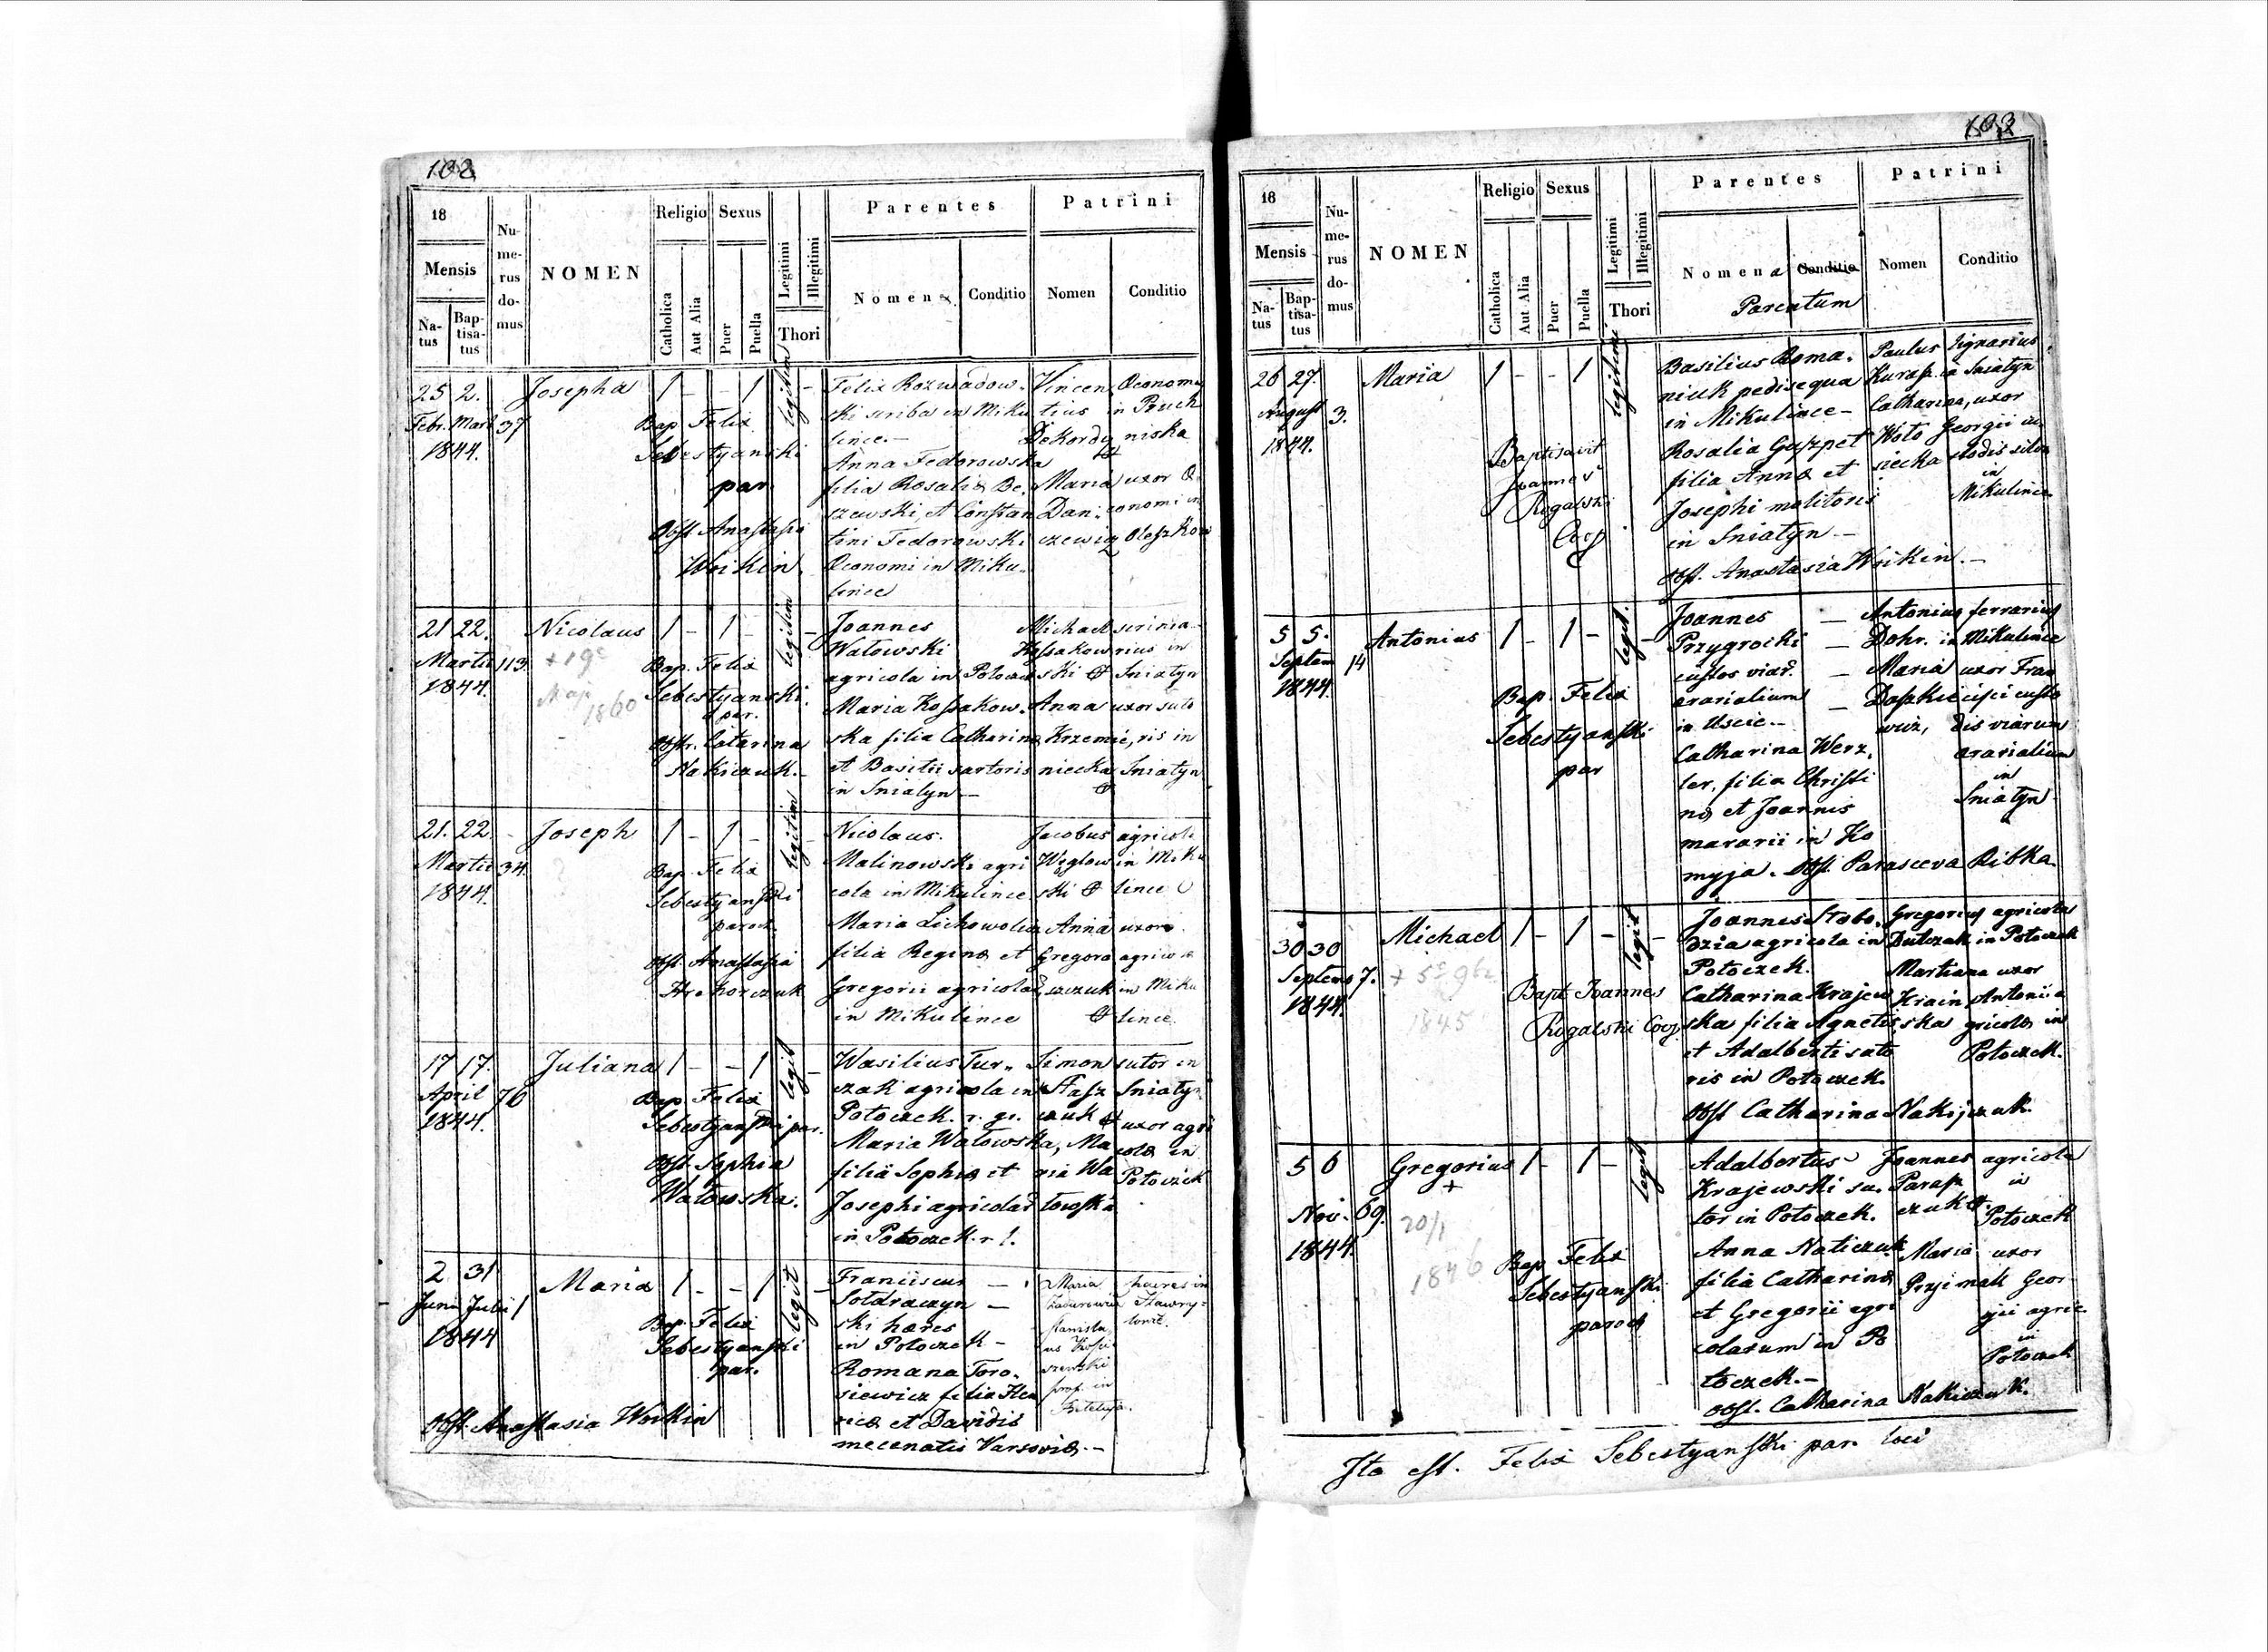 102
18
Mensis
Na-
tus
Bap-
tisa-
tus
Nu-
me-
rus
do-
mus
NOMEN
Religio
Catholica
Aut Alia
Sexus
Puer
Puella
Legitimi
Illegitimi
Thori
Parentes
Nomen
Conditio
Patrini
Nomen
Conditio
25 2.
Febr. Mart 37
1844.
Josepha
1 - - 1
legitim
Bap. Felix
Sebestyanski
par.
Obst. Anastasia
Woikin
Felix Rozwadow-
ski scriba in Miku
lince.-
Anna Fedorowska
filia Rosaliæ Be,
szewski, et Constan
tini Fedorowski
Oeconomi in Miku-
lince
Vincen
tius
Maria
Dan-
czewicz
Oeconom
in Pruch
niska
uxor O
economi in
21 22.
Martii 113.
1844.
Nicolaus
+ 19
Maji
1860
1 - 1 -
legitim
Bap. Felix
Sebestyanski.
par.
Obstr. Catarina
Nakiczuk.-
Joannes
Watowski
agricola in Potoczek
Maria Kossakow-
ska filia Catharinæ
et Basilii sartoris
in Sniatyn-
Michael
Kossakow
ski et
Anna
Krzemie,
niecka
scrinia-
rius in
Sniatyn
uxor suto
ris in
Sniatyn
21. 22.
Martii 34.
1844.
Joseph
1 - 1 -
legitim
Bap. Felix
Sebestyanski
paroch.
Obst. Anastasia
Hrehorczuk
Nicolaus
Malinowski agri
cola in Mikulince
Maria Lichowolia
filia Reginæ et
Gregorii agricolæ
in Mikulince
Jacobus
Węglow
ski et
Anna
Gregora
szczuk
agricola
in Miku
lince
uxor
agricolæ
in Miku
lince.
17 17.
April 76
1844.
Juliana
1 - - 1
legit
Bap. Felix
Sebestyanski par.
Obst. Sophia
Watowska.
Wasilius Tur-
czak agricola in
Potoczek. r. gr.
Maria Watowska,
filia Sophiæ et
Josephi agricolæ
in Potoczek. r. l.
Simon
Stasz
czuk et
Ma
ria Wa
towska
sutor in
Sniatyn
uxor agri
colæ in
Potoczek
2 31
Junii Julii 1
1844
Maria
1 - - 1
legit
Bap. Felix
Sebestyanski
par.
Obst. Anastasia Woikin
Franciscus
Sotdraczyn
ski hæres
in Potoczek -
Romana Toro-
siewicz filia Hen
ricæ et Davidis
mecenatis Varsoviæ.-
Maria
Stanisla
us
prof. in
hæres in
103
18
Mensis
Na-
tus
Bap-
tisa-
tus
Nu-
me-
rus
do-
mus
NOMEN
Religio
Catholica
Aut Alia
Sexus
Puer
Puella
Legitimi
Illegitimi
Thori
Parentes
Nomena Conditio
Parentum
Patrini
Nomen
Conditio
26 27.
August 3.
1844.
Maria
1 - - 1
legitimi
Baptisavit
Joannes
Rogalski
Coop
Basilius Roma-
niuk pedisequa
in Mikulince-
Rosalia Guszpet
filia Annæ et
Josephi molitoris
in Sniatyn-
Obst. Anastasia Woikin.-
Paulus
Kurasz.
Catharina,
Woto
siecka
lignarius
in Sniatyn
uxor
Georgii
in
Mikulince
5 5.
Septem 14
1844.
Antonius
1 - 1 -
legit.
Bap. Felix
Sebestyanski
par
Joannes
Przygrocki
custos viar.
ærarialium
in Uscie.-
Catharina Werz,
ler, filia Christi
næ et Joannis
mararii in Ko
myja. Obst. Parasceva Ribka.
Antonius
Dohr.
Maria
Daszkie
wicz,
ferrarius
in Mikulince
uxor Fran
cisci custo
dis viarum
ærarialium
in
Sniatyn
30 30
Septem 7.
1844.
Michael
+ 5
1845
1 - 1 -
legit
Bapt. Joannes
Rogalski Coop.
Joannes Stobo,
dzia agricola in
Potoczek.
Catharina Krajew
ska filia Agnetis,
et Adalberti suto
ris in Potoczek.
Obst Catharina Nakijczuk.
Gregorius
Dutczak
Martiana
Krain,
ska
agricola
in Potoczek
uxor
Antonii a
gricolæ in
Potoczek.
5 6
Nov. 69.
1844.
Gregorius
+
20/1
1846
1 - 1 -
legit
Bap. Felix
Sebestyanski
paroch
Adalbertus
Krajewski su-
tor in Potoczek.
Anna Naticzuk
filia Catharinæ
et Gregorii agri
colarum in Po
toczek.-
Obst. Catharina Nakiczuk.
Joannes
Parasz
czuk et
Maria
Przyimak
agricola
in
Potoczek
uxor
Geor-
gii agric.
in
Potoczek
Ita est. Felix Sebestyanski par. loci